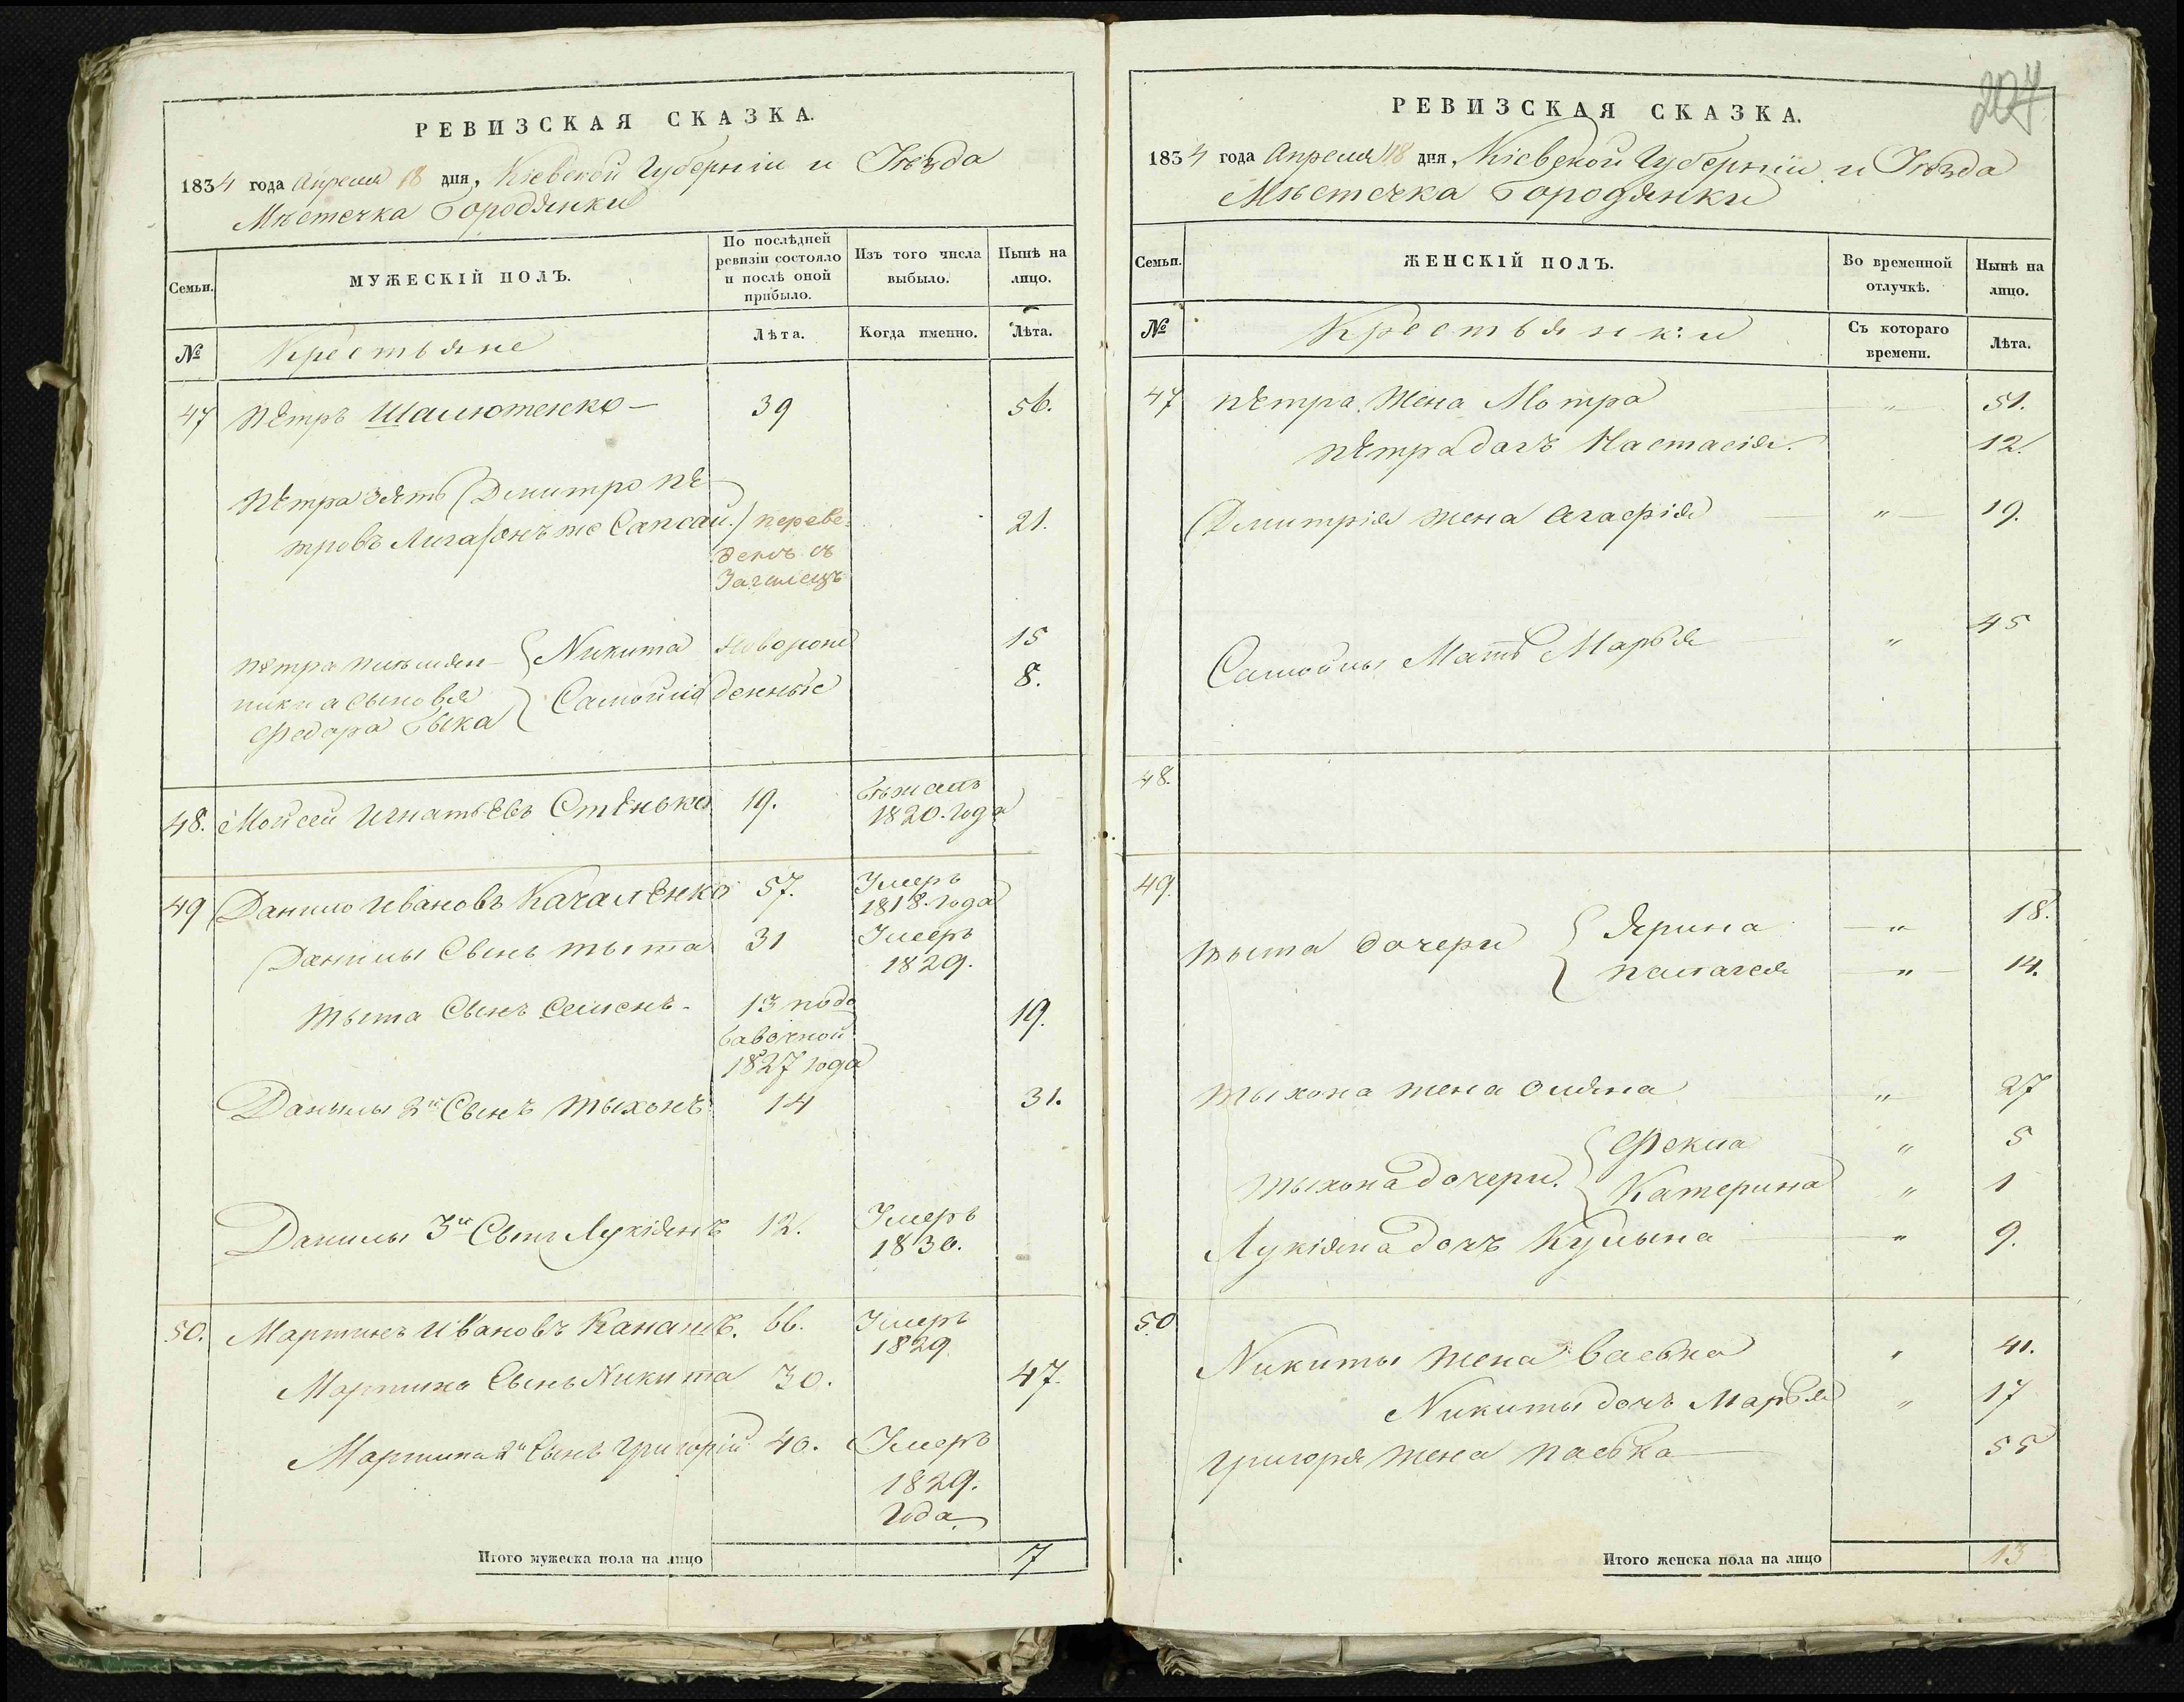 РЕВИЗСКАЯ СКАЗКА.
1834 года Апреля 18 дня, Кіевской Губерніи и Уѣзда
Мѣстечка Бородянки
Семьи.
МУЖЕСКІЙ ПОЛЪ.
По послѣдней
ревизіи состояло
и послѣ оной
прибыло.
Изъ того числа
выбыло.
Нынѣ на
лицо.
№
Крестьяне
Лѣта.
Когда именно.
Лѣта.
47 Петръ Шамотенко — 39 56.
Петра зять Дмитро Пе-
тровъ Лига онъ же Сапсай переве- 21.
денъ съ
Петра племян- Никита новорож 15
ника сыновья Самойла денные 8.
Федора Быка
48. Мойсей Игнатьевъ Стенько 19. бѣжалъ
1820. года
49 Данило Ивановъ Качаленко 57. Умеръ
1818. года
Данилы Сынъ Тыта 31 Умеръ
1829.
Тыта Сынъ Семенъ - 13 по до 19.
бавочной
1827 года
Данилы 2й Сынъ Тыхонъ 14 31.
Данилы 3й Сынъ Лукіянъ 12. Умеръ
1830.
50. Мартинъ Ивановъ Канашъ. 66. Умеръ
1829
Мартина Сынъ Никита 30. 47.
Мартина 2й Сынъ Григорій 40. Умеръ
1829.
Года
Итого мужеска пола на лицо 7
204
РЕВИЗСКАЯ СКАЗКА.
1834 года Апреля 18 дня, Кіевской Губерніи и Уѣзда
Мѣстечка Бородянки
Семьи.
ЖЕНСКІЙ ПОЛЪ.
Во временной
отлучкѣ.
Нынѣ на
лицо.
№
Крестьянки
Съ котораго
времени.
Лѣта.
47 Петра Жена Мотра " 51.
Петра дочь Настасія. 12.
Дмитрія жена Агафія " 19.
Самойлы Мать Марья " 45
48.
49.
Тыта дочери Ярина " 18.
Палагея " 14.
Тыхона жена Оляна " 27
Тыхона дочери. Фекла " 5
Катерина " 1
Лукіяна дочь Кулына " 9.
50
Никиты жена Васька " 41.
Никиты дочь Марья " 17
Григорія жена Паська 55
Итого женска пола на лицо 13